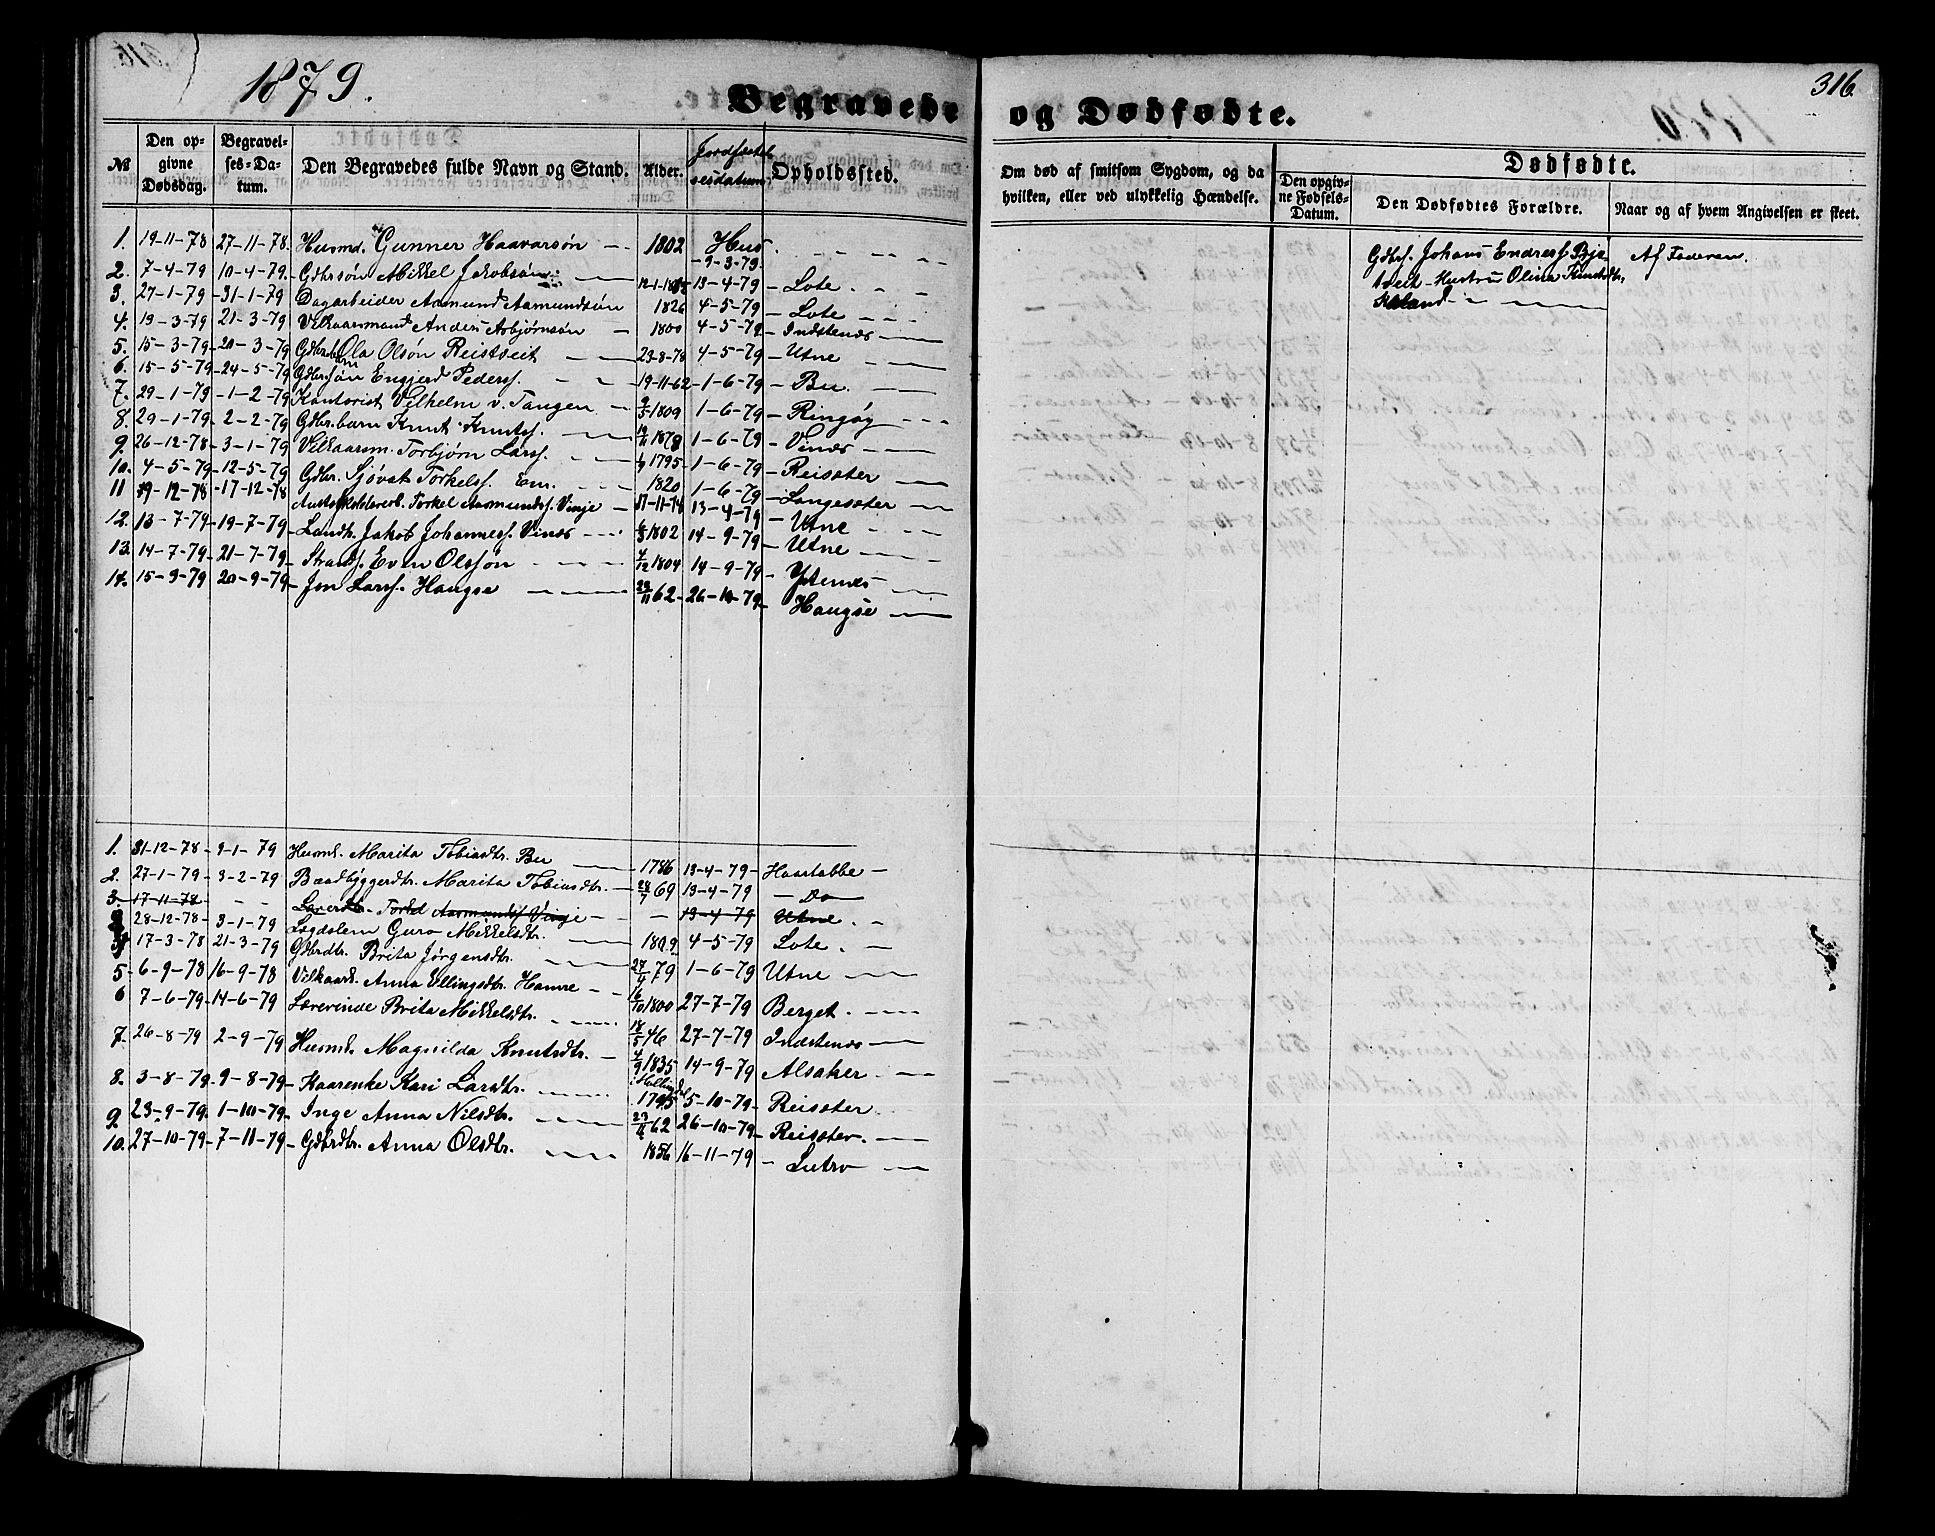 1879.
Begravede og Dødfødte.
316.
№
Den opgivne Dødsdag.
Begravelses-Datum.
Den Begravedes fulde Navn og Stand.
Alder.
Jordfæstelsesdatum.
Opholdssted.
Om død af smitsom Sygdom, og da hvilken, eller ved ulykkelig Hændelse.
Dødfødte.
Den opgivne Fødsels-Datum.
Den Dødfødtes Forældre.
Naar og af hvem Angivelsen er skeet.
1. 19-11-78 27-11-78. Husmd. Gunner Haavarsøn 1802 9-3-79. Hus
2. 7-4-79 10-4-79. Gdbrsøn Mikkel Jakobsøn 13-4-79 Lote
3. 27-1-79 31-1-79 Dagarbeider Aamund Aamundsøn 1826 4-5-79 Lote
4. 19-3-79 21-3-79 Vilkaarsmand Anders Asbjørnsøn 1800 4-5-79 Indstenæs
5. 15-3-79 20-3-79 Ola Olsøn Reistveit 23-8-78 4-5-79 Utne
6. 15-5-79 24-5-79 Gdbrsøn Engjerd Pederss. 19-11-62 1-6-79 Bu.
7. 29-1-79 1-2-79 Kontorist Vilhelm v. Tangen 1809 1-6-79 Ringøy
8. 29-1-79 2-2-79 Gdbr.barn Knut Knuts. 1878 1-6-79 Vines
9. 26-12-78 3-1-79 Vilkaarsm. Torbjørn Larss. 1795 1-6-79 Reisæter
10. 4-5-79 12-5-79 Gdbr. Sjøvat Torkelss. Em. 1820 1-6-79 Langesæter
11 17-12-78 Torkel Aasmundss. Vinje 17-11-74 13-4-79 Utne
12. 13-7-79 19-7-79 Landh. Jakob Johanness. Vines 1802 14-9-79 Utne
13. 14-7-79 21-7-79 Strands. Even Olssøn 1804 14-9-79 Ystenes
14. 15-9-79 20-9-79 Jon Larss. Haugse 62 26-10-79 Haugse
Gdbrs. Johans Endress. Bjo
tveit - Hustru Olina Knudsdtr.
Af Faderen.
1. 31-12-78 9-1-79 Husmk. Marita Tobiasdtr. Bu 1786 13-4-79 Haastabbe
2. 27-1-79 3-2-79 Baadbyggerdtr. Marita Tobiasdtr. 69 13-4-79 Do
3. 17-11-78 Lærerdtr. Torkel Aasmundss. Vinje 13-4-79 Utne
28-12-78 3-1-79 Lægdslem Guro Mikkelsdtr. 1809 4-5-79 Lote
17-3-78 21-3-79 Gdbrdtr. Brita Jørgensdtr. 79 1-6-79 Utne
5 6-9-78 16-9-78 Vilkaark. Anna Ellingsdtr. Hamre 1800 27-7-79 Berget
6 7-6-79 14-6-79 Lærerinde Brita Mikkelsdtr. 46 27-7-79 Indstenæs
7. 26-8-79 2-9-79 Husmk. Magnilda Knutsdtr. 1835 14-9-79 Alsaker
8. 3-8-79 9-8-79 Kaarenke Kari Larsdtr. 1795 5-10-79 Reisæter
9. 23-9-79 1-10-79 Inge Anna Nilsdtr. 62 26-10-79 Reisæter.
10. 27-10-79 7-11-79 Gdbrdtr. Anna Olsdtr. 1856 16-11-79 Lutro